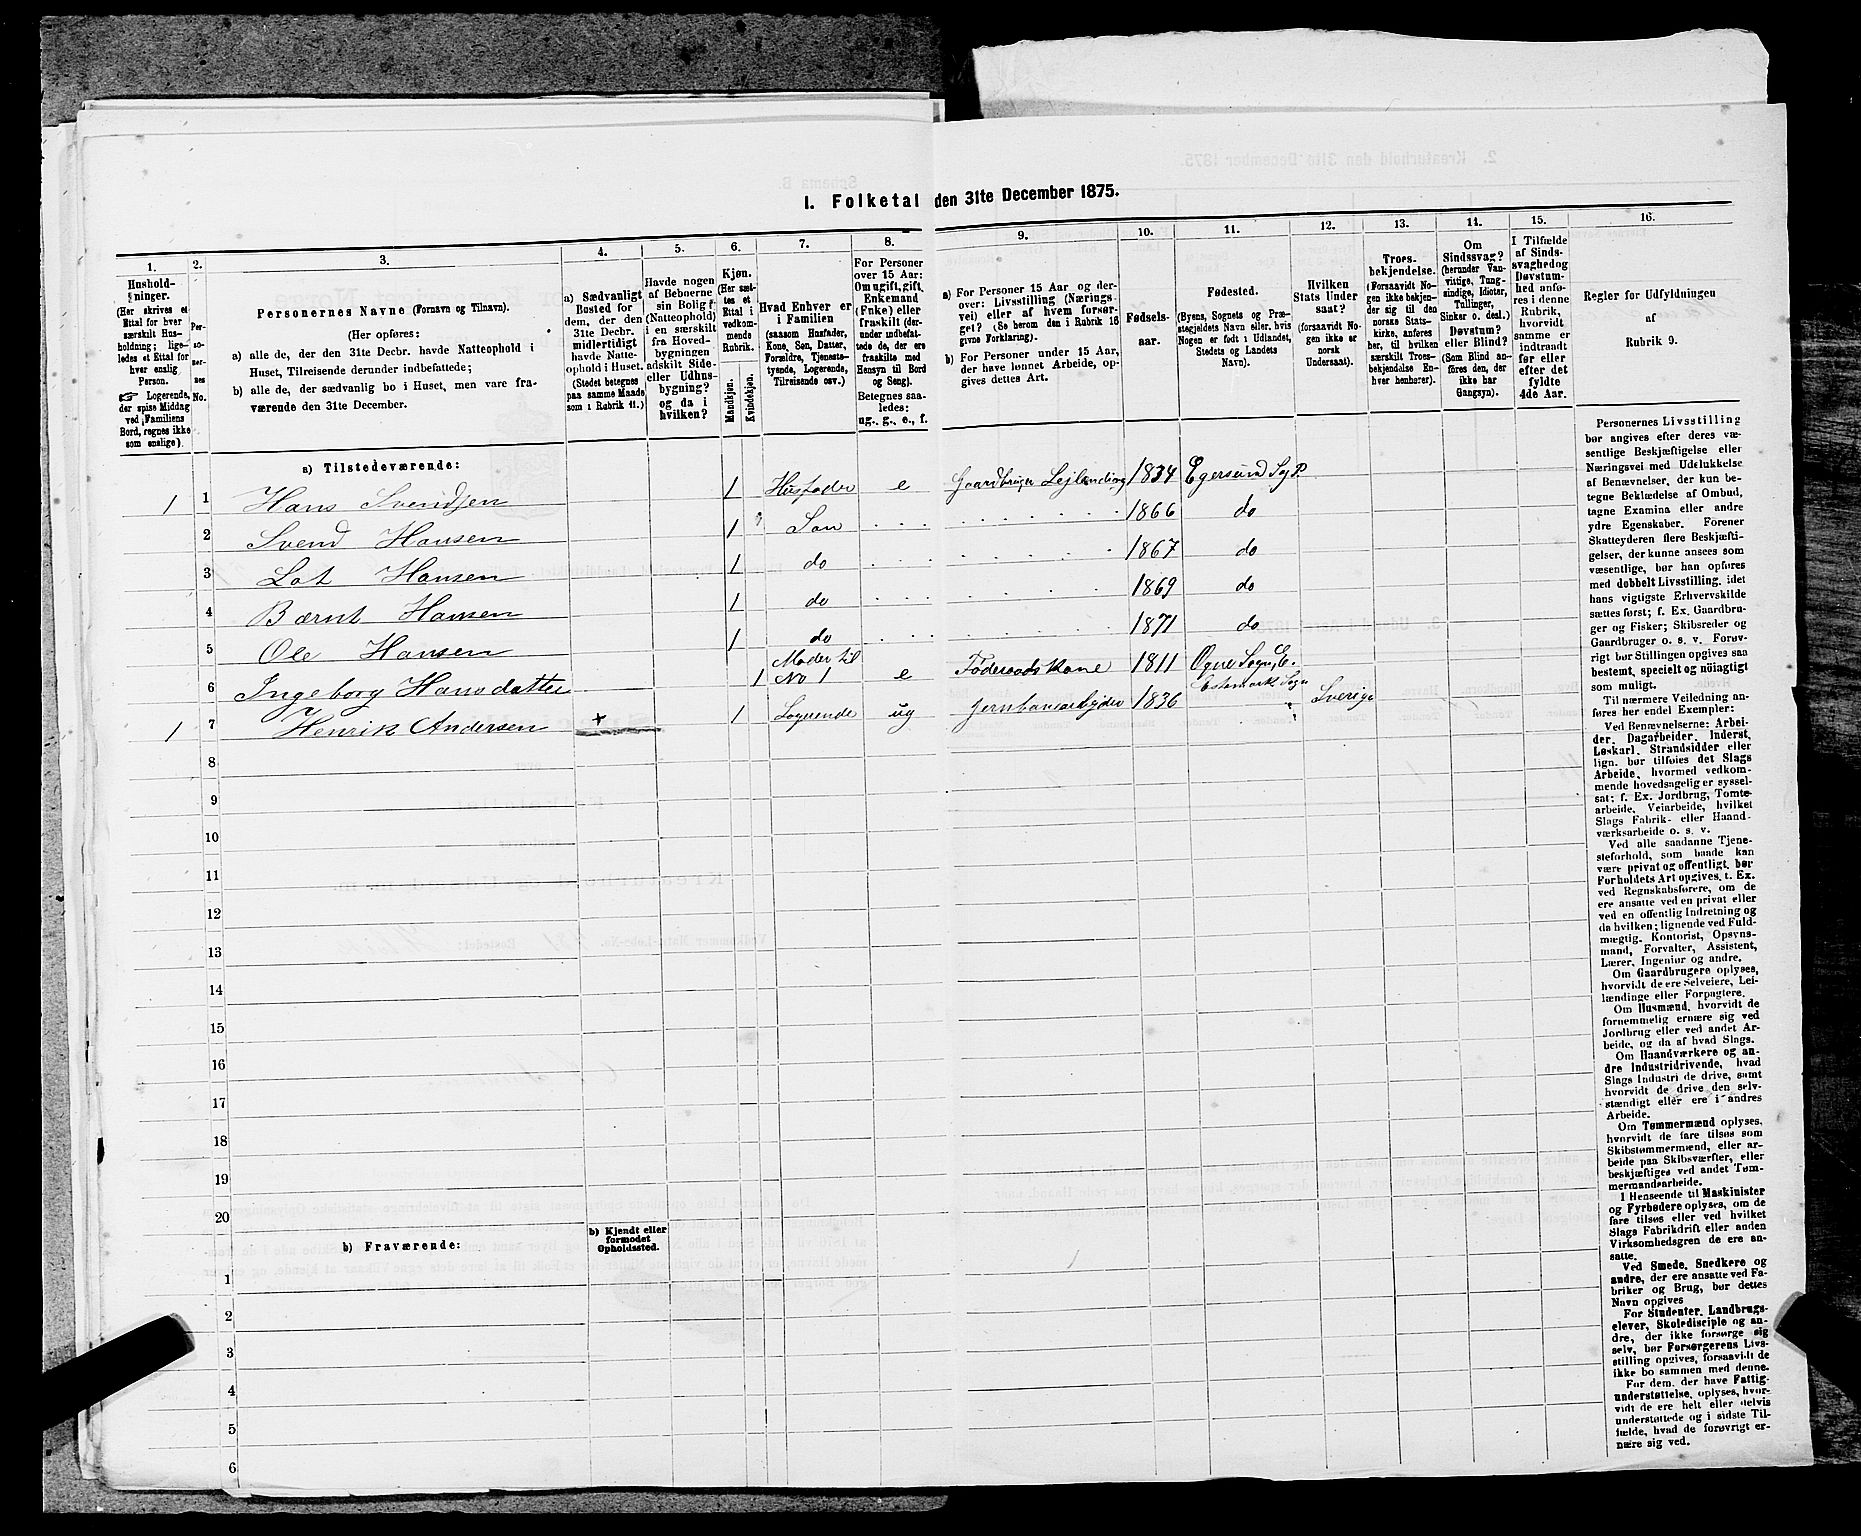 I. Folketal den 31te December 1875.
1.
Hushold-
ninger.
(Her skrives et
Ettal for hver
særskilt Hus-
holdning; lige-
ledes et Ettal for
hver enslig
Person.
☞ Logerende,
der spise Middag
ved Familiens
Bord, regnes ikke
som enslige).
2.
Per-
so-
ner-
nes
No.
3.
Personernes Navne (Fornavn og Tilnavn).
(Her opføres:
a) alle de, der den 31te Decbr. havde Natteophold i
Huset, Tilreisende derunder indbefattede;
b) alle de, der sædvanlig bo i Huset, men vare fra-
værende den 31te December.
4.
a) Sædvanligt
Bosted for
dem, der den
31te Decbr.
midlertidigt
havde Natte-
ophold i Huset.
(Stedet betegnes
paa samme Maade
som i Rubrik 11.)
5.
Havde nogen
af Beboerne
sin Bolig
(Natteophold)
i en særskilt
fra Hoved-
bygningen
adskilt Side-
eller Udhus-
bygning?
og da i
hvilken?
6.
Kjøn.
(Her sæt-
tes et
Ettal i
vedkom-
mende
Rubrik.
Mandkjøn.
Kvindekjøn.
7.
Hvad Enhver er
i Familien
(saasom Husfader,
Kone, Søn, Datter,
Forældre, Tjeneste-
tyende, Logerende,
Tilreisende osv.)
8.
For Personer
over 15 Aar:
Om ugift, gift,
Enkemand
(Enke) eller
fraskilt (der-
under indbefat-
tede de, der ere
fraskilte med
Hensyn til Bord
og Seng).
Betegnes saa-
ledes:
ug., g., e., f.
9.
a) For Personer 15 Aar og der-
over: Livsstilling (Nærings-
vei) eller af hvem forsør-
get? (Se herom den i Rubrik 16
givne Forklaring).
b) For Personer under 15 Aar,
der have lønnet Arbeide, op-
gives dettes Art.
10.
Fødsels-
aar.
11.
Fødested.
(Byens, Sognets og Præ-
stegjeldets Navn eller, hvis
Nogen er født i Udlandet,
Stedets og Landets
Navn).
12.
Hvilken
Stats Under-
saat?
(forsaavidt No-
gen ikke er
norsk
Undersaat).
13.
Troes-
bekjendelse.
(Forsaavidt No-
gen ikke bekjen-
der sig til den
norske Stats-
kirke, anføres
her, til hvilken
særskilt Troes-
bekjendelse En-
hver henhører).
14.
Om
Sindssvag?
(herunder Van-
vittige, Tung-
sindige, Idioter,
Tullinger,
Sinker o. desl.)
Døvstum?
eller Blind?
(Som Blind an-
føres den, der
ikke har
Gangsyn).
15.
I Tilfælde
af Sinds-
svaghed og
Døvstum-
hed anfø-
res i denne
Rubrik,
hvorvidt
samme er
indtraadt
før eller
efter det
fyldte
4de Aar.
16.
Regler for Udfyldningen
af
Rubrik 9.
a) Tilstedeværende:
1 1 Hans Svendsen 1 Husfader e Gaardbruger Lejlending 1834 Egersund Sg P.
2 Svend Hansen 1 Søn 1866 do
3 Lot Hansen 1 do 1867 do
4 Bærnt Hansen 1 do 1869 do
5 Ole Hansen 1 do 1871 do
6 Ingeborg Hansdatter 1 Moder til No 1 e Föderaadskone 1811 Ogne Sogn, E.
1 7 Henrik Andersen + 1 Logerende ug Jernbanearbejder 1836 Sogn Sverige
8
9
10
11
12
13
14
15
16
17
18
19
20
b) Fraværende:
b) Kjendt eller
formodet
Opholdssted.
1
2
3
4
5
6
Personernes Livsstilling
bør angives efter deres væ-
sentlige Beskjæftigelse eller
Næringsvei med Udelukkelse
af Benævnelser, der kun be-
tegne Beklædelse af Ombud,
tagne Examina eller andre
ydre Egenskaber. Forener
Skatteyderen flere Beskjæfti-
gelser, der kunne ansees som
væsentlige, bør han opføres
med dobbelt Livsstilling, idet
hans vigtigste Erhvervskilde
sættes først; f. Ex. Gaardbru-
ger og Fisker; Skibsreder og
Gaardbruger o. s. v. Forøv-
rigt bør Stillingen opgives saa
bestemt, specielt og nøiagtig
som muligt.
Til nærmere Veiledning an-
føres her endel Exempler:
Ved Benævnelserne: Arbei-
der, Dagarbeider, Inderst,
Løskarl, Strandsidder eller
lign. bør tilføies det Slags
Arbeide, hvormed vedkom-
mende hovedsagelig er syssel-
sat; f. Ex. Jordbrug, Tomte-
arbeide, Veiarbeide, hvilket
Slags Fabrik- eller Haand-
værksarbeide o. s. v.
Ved alle saadanne Tjene-
steforhold, som baade kan
være privat og offentligt, bør
Forholdets Art opgives, t. Ex.
ved Regnskabsførere, om de
ere ansatte ved en privat eller
ved en offentlig Indretning og
da hvilken; lignende ved Fuld-
mægtig, Kontorist, Opsyns-
mand, Forvalter, Assistent,
Lærer, Ingeniør og andre.
Om Gaardbrugere oplyses,
hvorvidt de ere Selveiere, Lei-
lændinge eller Forpagtere.
Om Husmænd, hvorvidt de
fornemmelig ernære sig ved
Jordbrug eller ved andet Ar-
beide, og da af hvad Slags.
Om Haandværkere og an-
dre Industridrivende, hvad
Slags Industri de drive, samt
hvorvidt de drive den selv-
stændigt eller ere i andres
Arbeide.
Om Tømmermænd oplyses,
hvorvidt de fare tilsøs som
Skibstømmermænd, eller ar-
beide paa Skibsværfter, eller
beskjæftiges ved andet Tøm-
mermandsarbeide.
I Henseende til Maskinister
og Fyrbødere oplyses, om de
fare tilsøs eller ved hvilket
Slags Fabrikdrift eller anden
Virksomhedsgren de ere an-
satte.
Ved Smede, Snedkere og
andre, der ere ansatte ved Fa-
briker og Brug, bør dettes
Navn opgives
For Studenter, Landbrugs-
elever, Skoledisciple og an-
dre, der ikke forsørge sig
selv, bør Forsørgerens Livs-
stilling opgives, forsaavidt de
ikke bo sammen med denne.
For dem, der have Fattig-
understøttelse, oplyses, hvor-
vidt de ere helt eller delvis
understøttede og i sidste Til-
fælde, hvad de forøvrigt er-
nære sig ved.